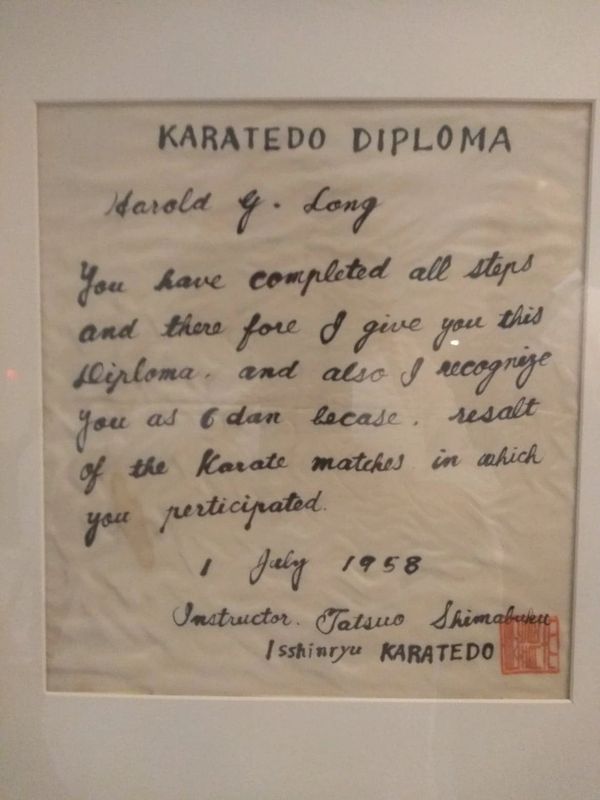 KARATEDO DIPLOMA
Harold G. Long
You have completed all steps
and there fore I give you this
Diploma. and also I recognize
you as 6 dan becase. resalt
of the Karate matches in which
you perticipated.
1 July 1958
Instructor. Tatsuo Shimabuku
Isshinryu KARATEDO